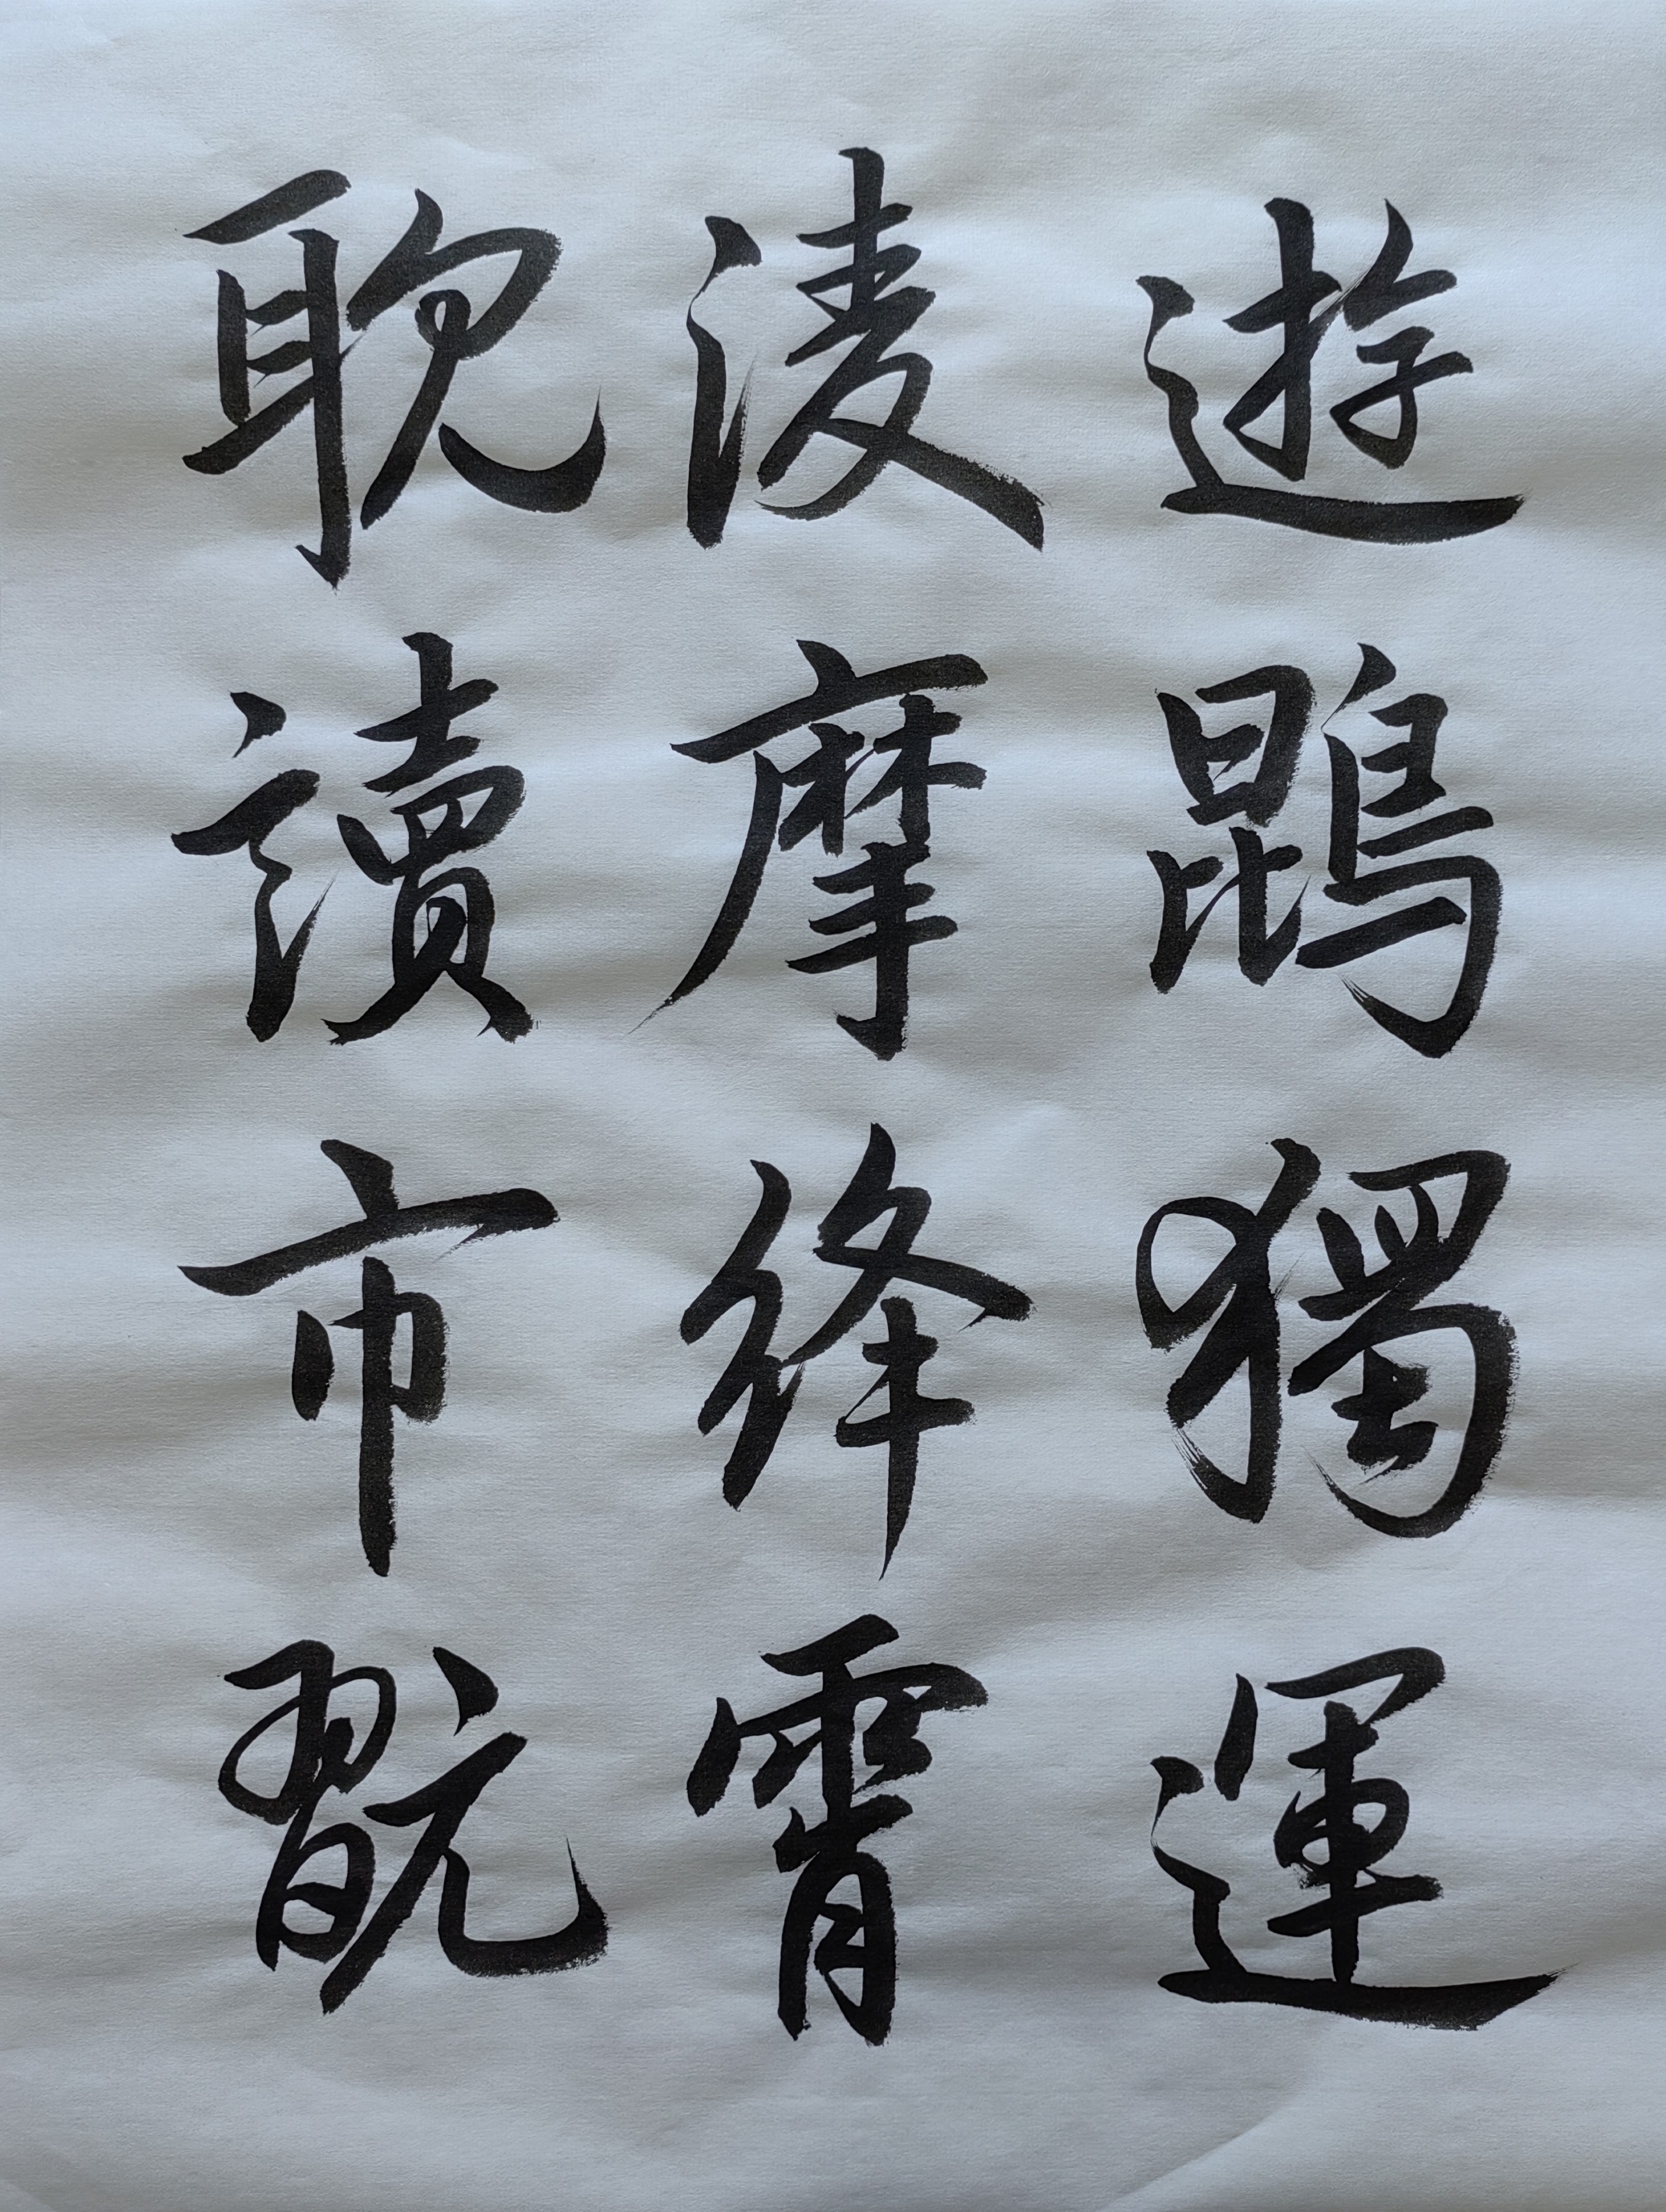 遊鵾獨運
凌摩絳霄
耽讀市翫